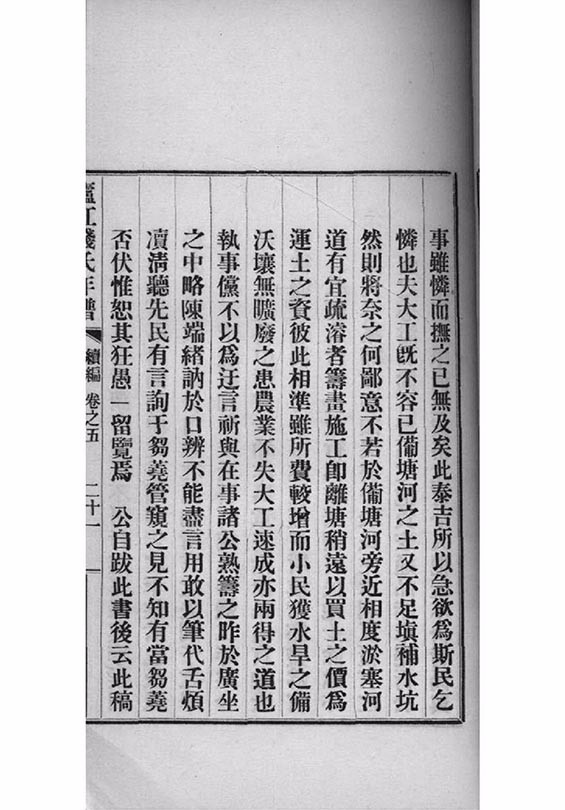 事雖憐而撫之已無及矣此泰吉所以急欲爲斯民乞
憐也夫大工旣不容已僃塘河之土又不足塡補水坑
然則將奈之何鄙意不若於僃塘河旁近相度淤塞河
道有宜疏濬者籌畫施工卽離塘稍遠以買土之價爲
運土之資彼此相準雖所費較增而小民獲水旱之備
沃壤無曠廢之患農業不失大工速成亦兩得之道也
執事儻不以爲迂言祈與在事諸公熟籌之昨於廣坐
之中略陳端緒訥於口辨不能盡言用敢以筆代舌煩
凟淸聽先民有言詢于芻蕘管窺之見不知有當芻蕘
否伏惟恕其狂愚一留覽焉　公自跋此書後云此稿
廬江錢氏年譜　續編　卷之五　二十一